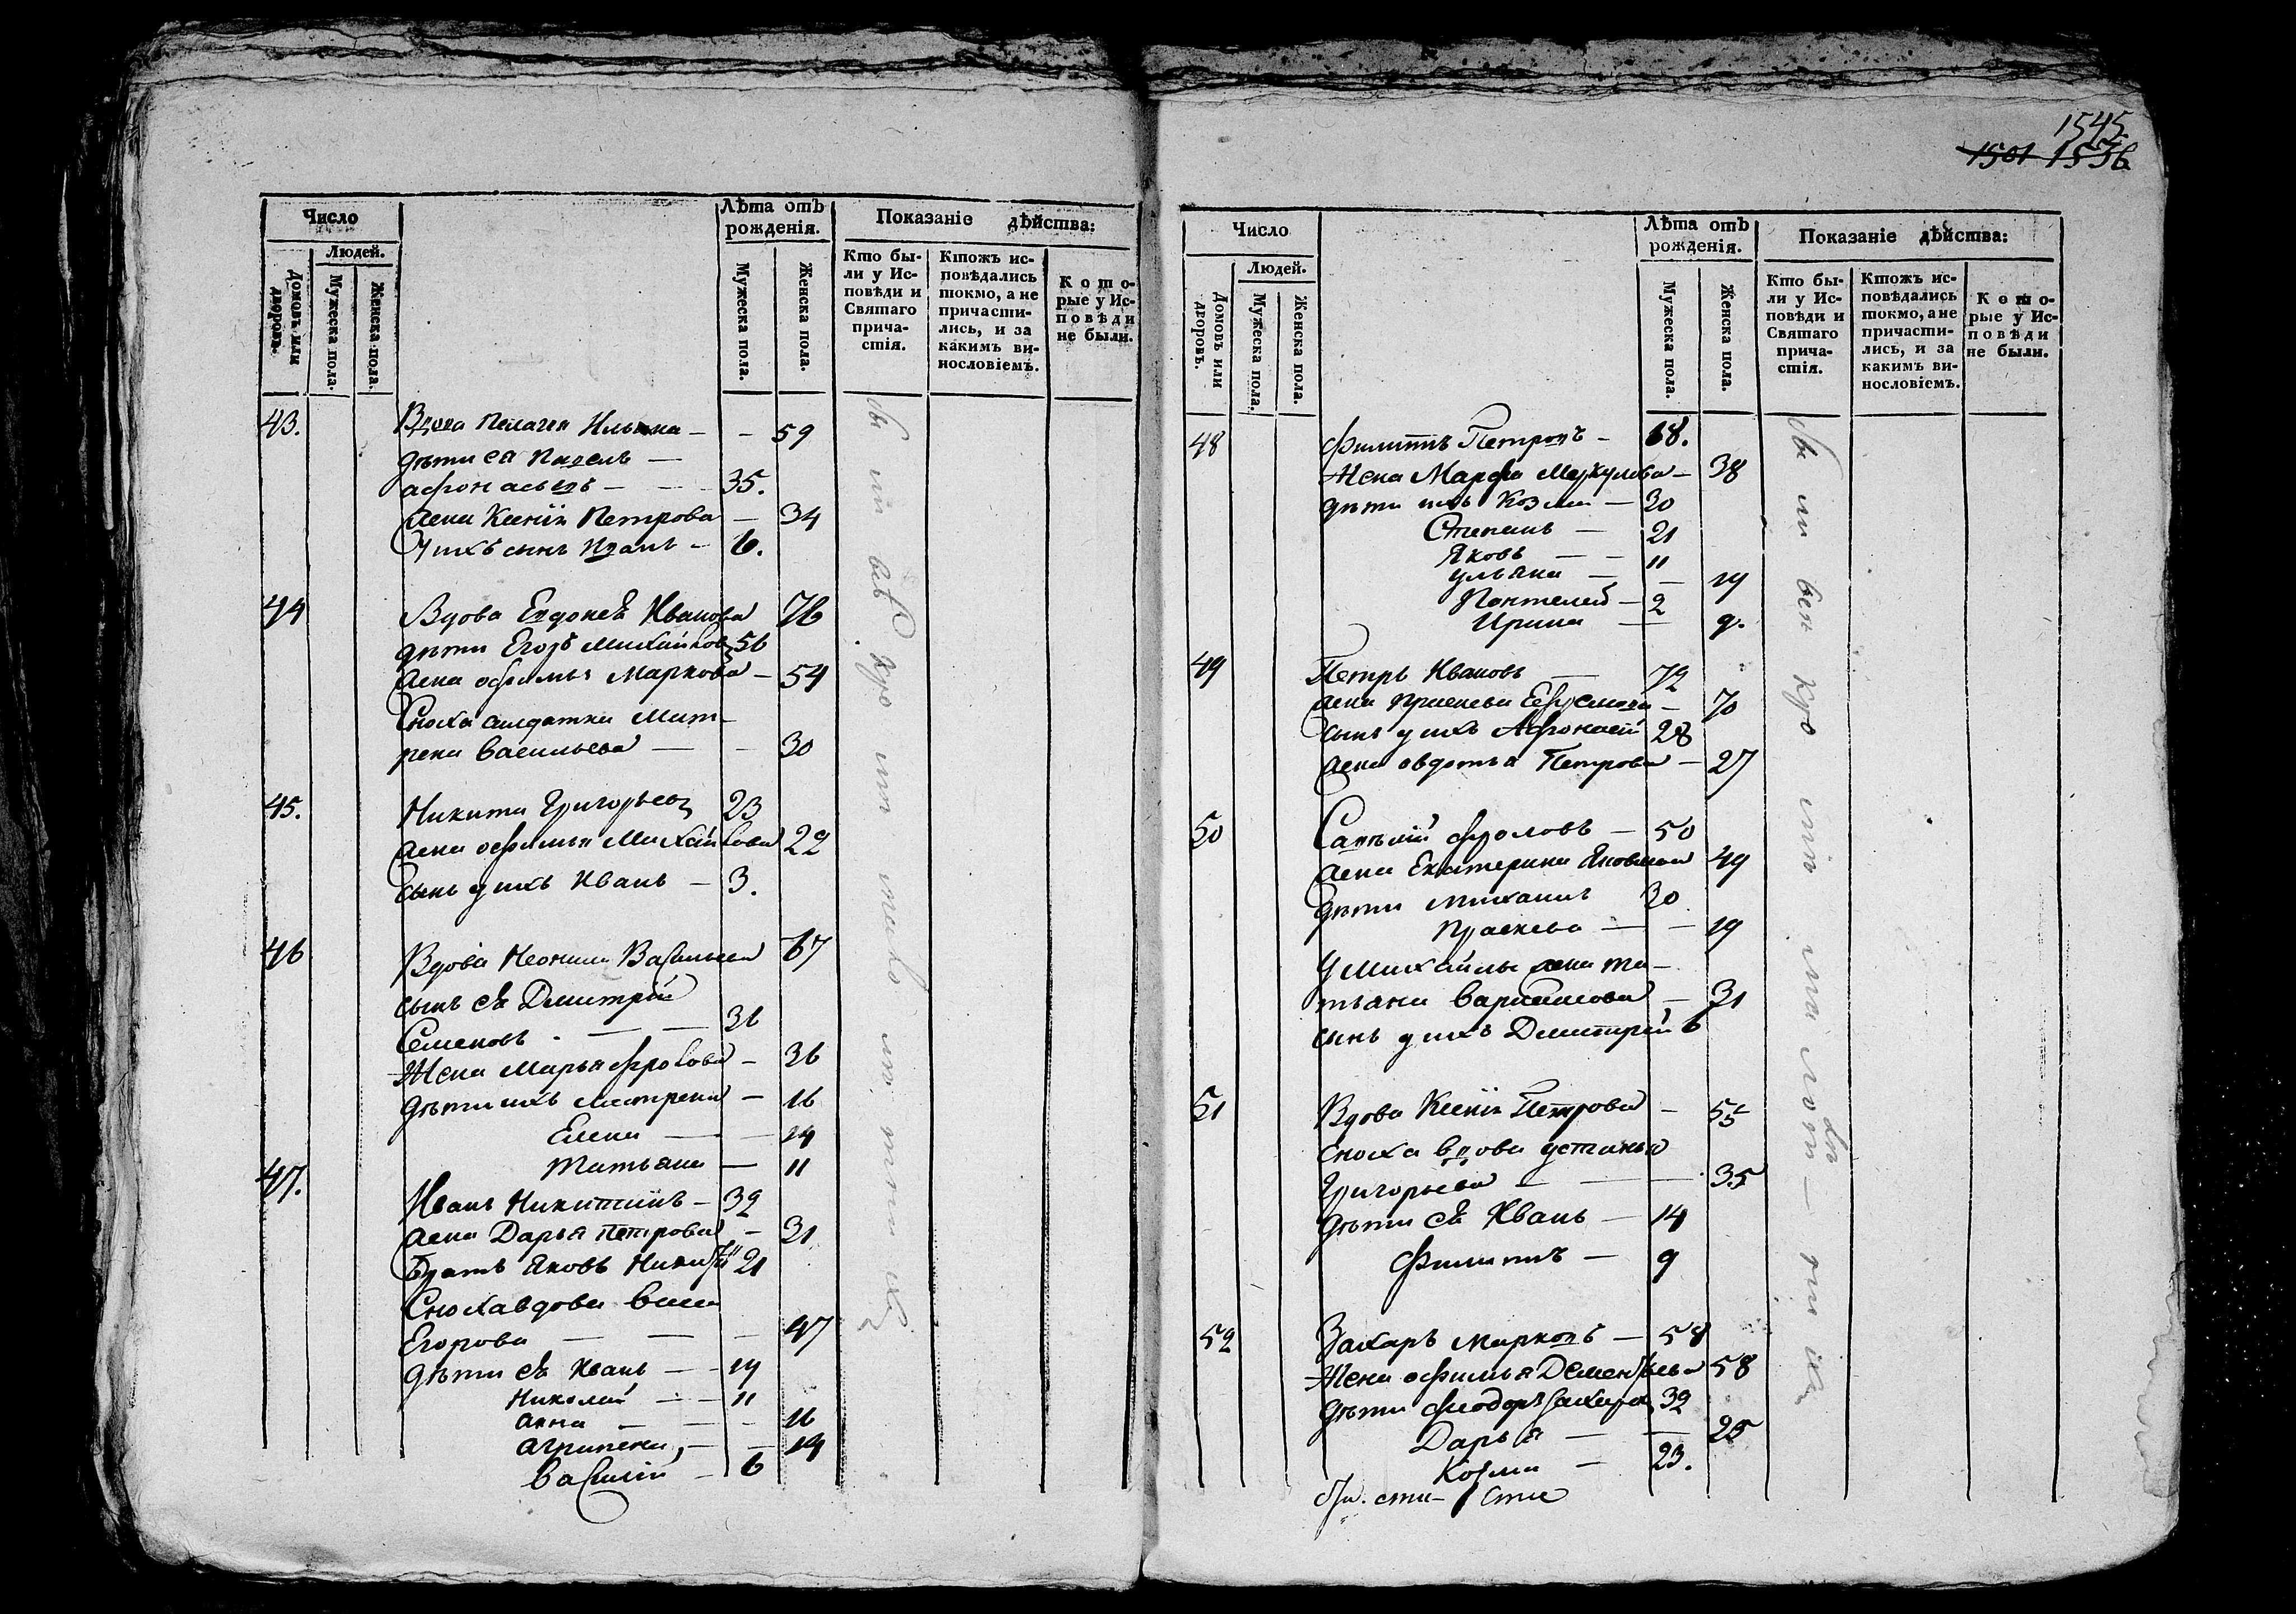 1545
1501 1536
Число
Людей.
Домовъ или дворовъ.
Мужеска пола.
Женска пола.
Лѣта отъ рожденія.
Мужеска пола.
Женска пола.
Показаніе дѣйства:
Кто бы-
ли у Ис-
повѣди и
Святаго
прича-
стія.
Ктожъ ис-
повѣдались
токмо, а не
причасти-
лись, и за
какимъ ви-
нословіемъ.
Кото-
рые у Ис-
повѣди
не были.
43. Вдова Пелагея Ильина — — 59
дѣти ея Павелъ —
афонасьевъ — — 35.
жена Ксенія Петрова — 34
У ихъ сынъ Иванъ — 6.
44 Вдова Евдокея Иванова 76
дѣти Егоръ Михайловъ 56
жена офимья Маркова — 54
Сноха салдатка Мат-
рена Васильева — — 30
45. Никита Григорьевъ 23
жена офимья Михайлова 22
сынъ у ихъ Иванъ — 3.
46 Вдова Неонила Васильева 67
сынъ ея Дмитрей
Семеновъ — — 36
Жена Марья Фролова — 36
дѣти ихъ матрена — 16
Елена — — 14
Татьяна — 11
47. Иванъ Никитинъ — 32
жена Дарья Петрова — 31
братъ Яковъ Никит 21
Сноха вдова
Егорова — — — 47
дѣти ея Иванъ — — 14
Николай — — 11
анна — — — 16
агрипена, — — 14
Василій — 6
Число
Людей.
Домовъ или дворовъ.
Мужеска пола.
Женска пола.
Лѣта отъ рожденія.
Мужеска пола.
Женска пола.
Показаніе дѣйства:
Кто бы-
ли у Ис-
повѣди и
Святаго
прича-
стія.
Ктожъ ис-
повѣдались
токмо, а не
причасти-
лись, и за
какимъ ви-
нословіемъ.
Кото-
рые у Ис-
повѣди
не были.
48 Филиппъ Петровъ — 68.
Жена Марфа Меркулова — 38
дѣти ихъ Козма — 30
Степанъ — 21
Яковъ — — 11
ульяна — — 14
Пантелей — 2
Ирина — 9.
49 Петръ Ивановъ — 72
жена Прасковья — 70
сынъ у ихъ Афонасей 28
жена овдотья Петрова — 27
50 Савелій Фроловъ — 50
жена Екатерина Яковлева 49
дѣти михаилъ 30
Прасковья — — 19
У михайлы жена та-
тьяна — 31
сынъ у ихъ Дмитрей 6
51 Вдова Ксенія Петрова — 55
сноха вдова устинья
Григорьева — — 35
дѣти ея Иванъ — 14
Филиппъ — 9
52 Захаръ марковъ — 58
Жена офимья Дементьева 58
дѣти Феодоръ Захаровъ 32
Дарья — — 25
Козма — 23.